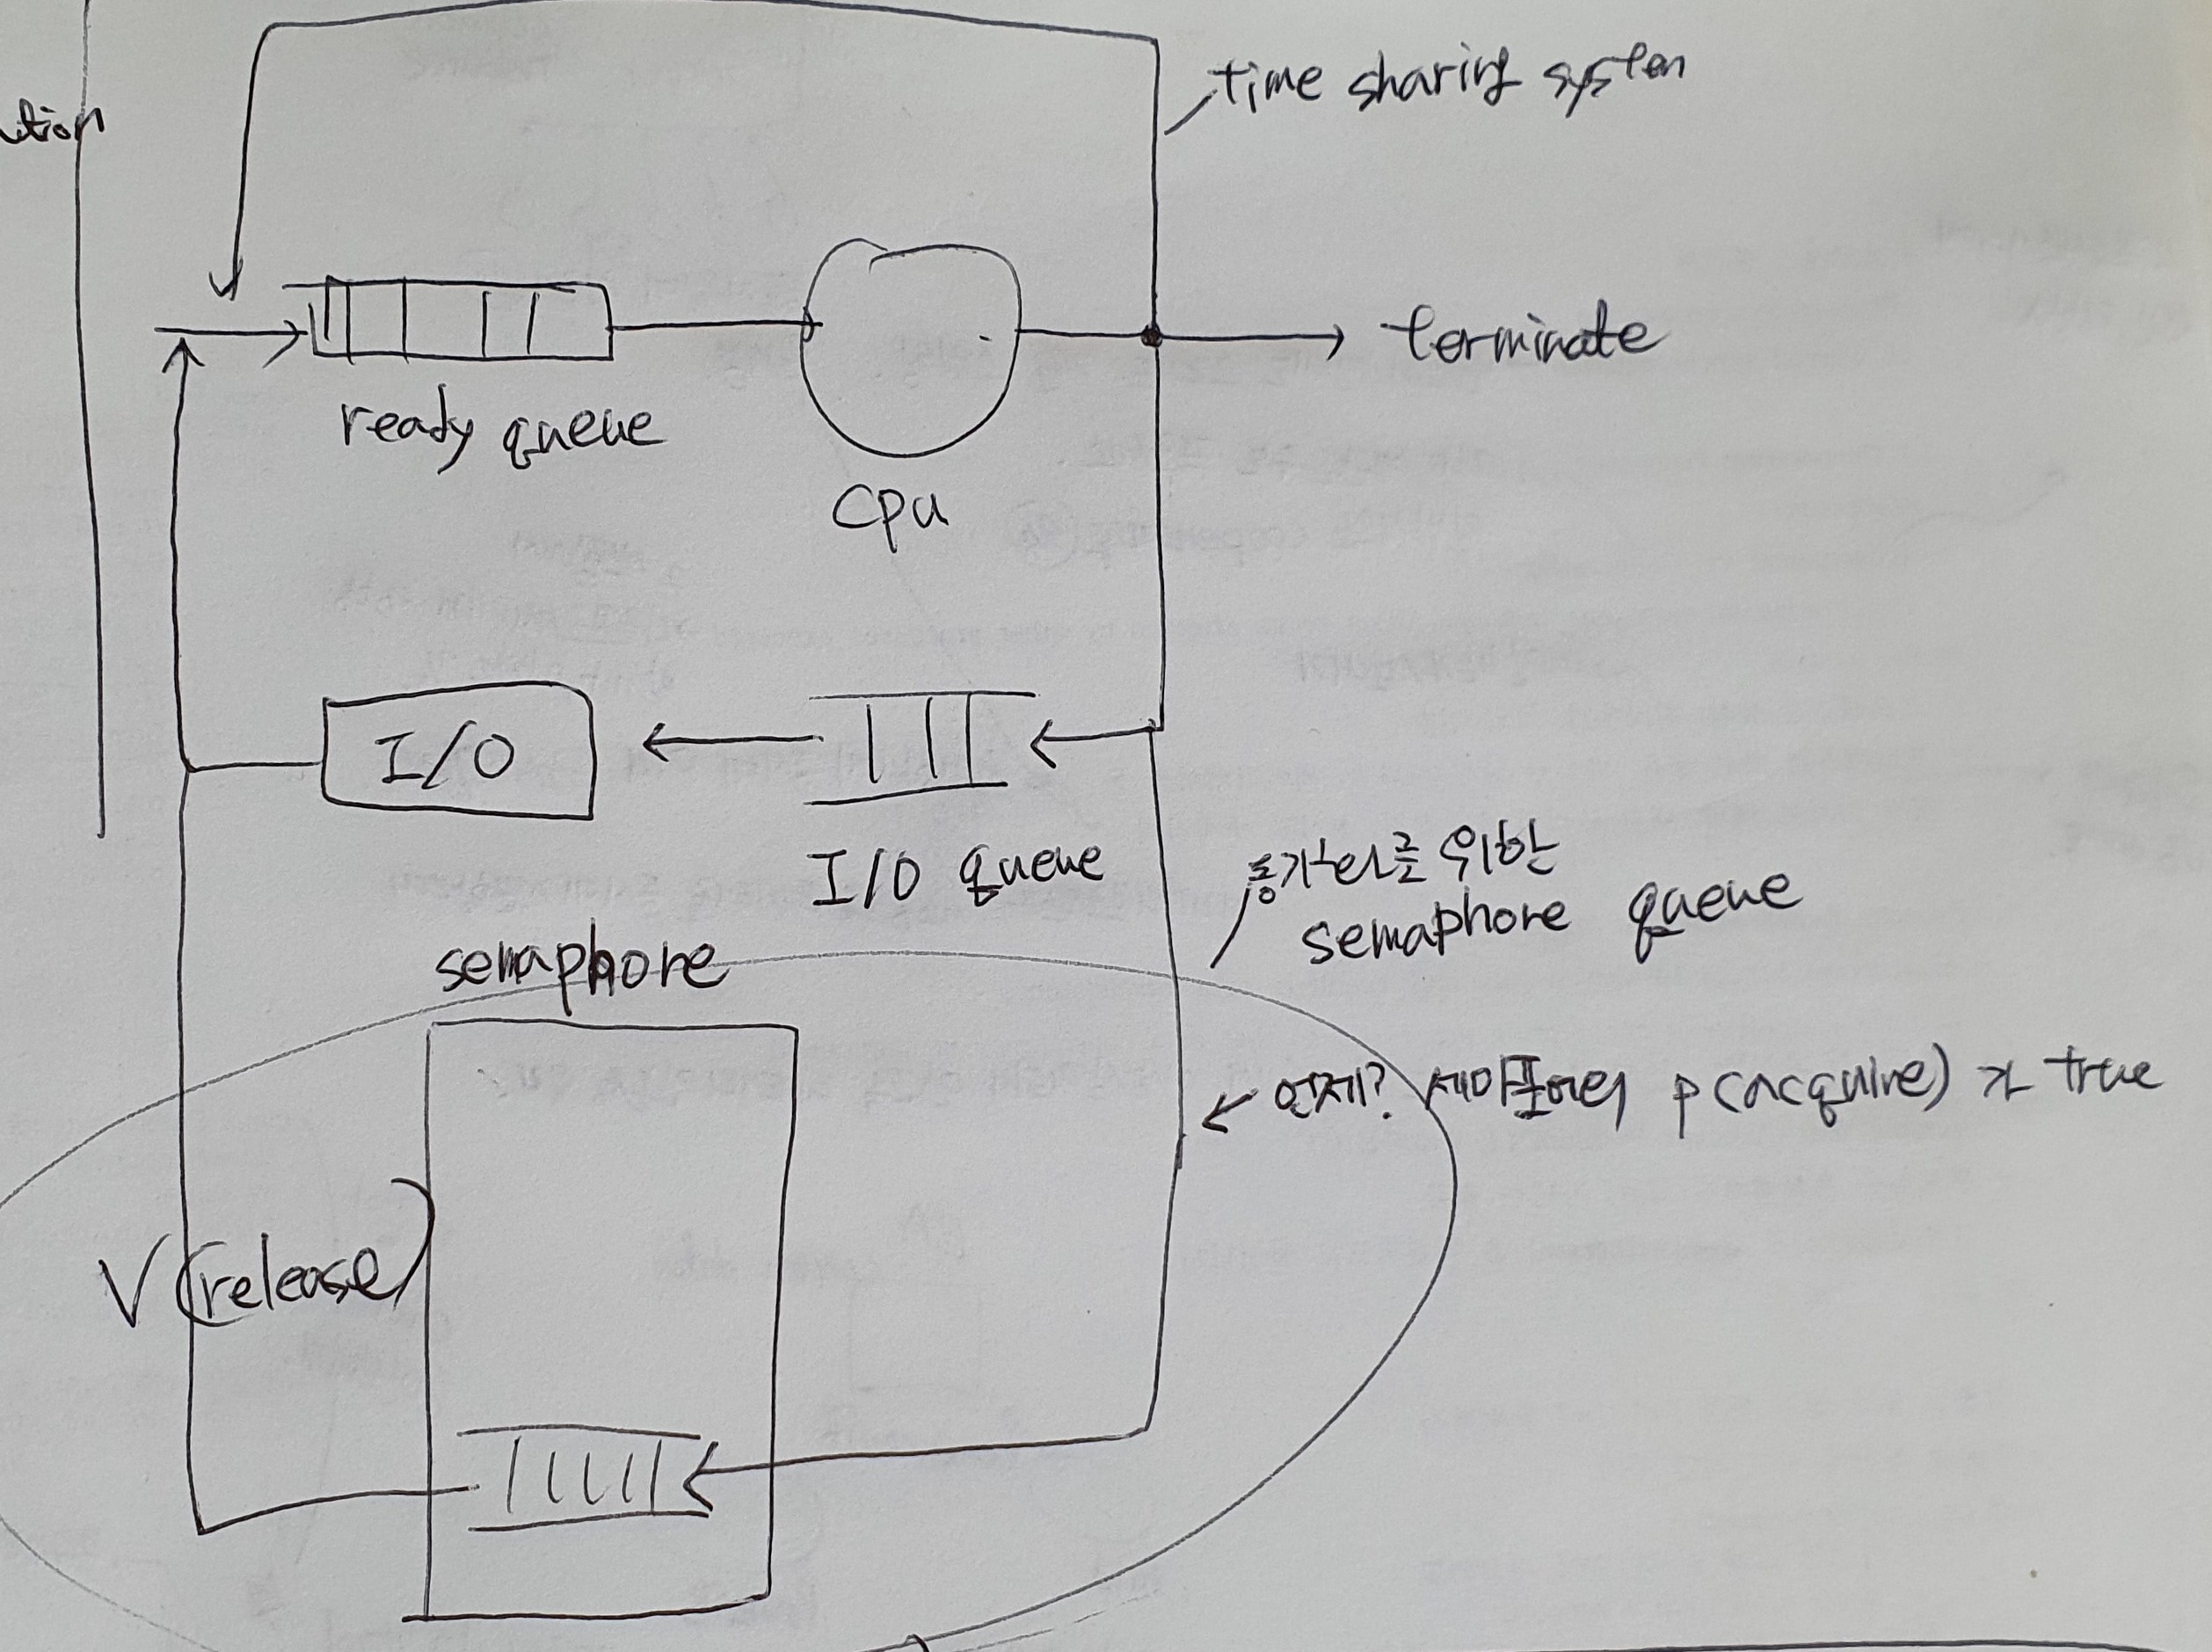 time sharing system
ution
terminate
ready queue
cpu
I/O
I/O queue
동기화를 위한
semaphore queue
semaphore
언제? 세마포어의 p(acquire)가 true
V(release)